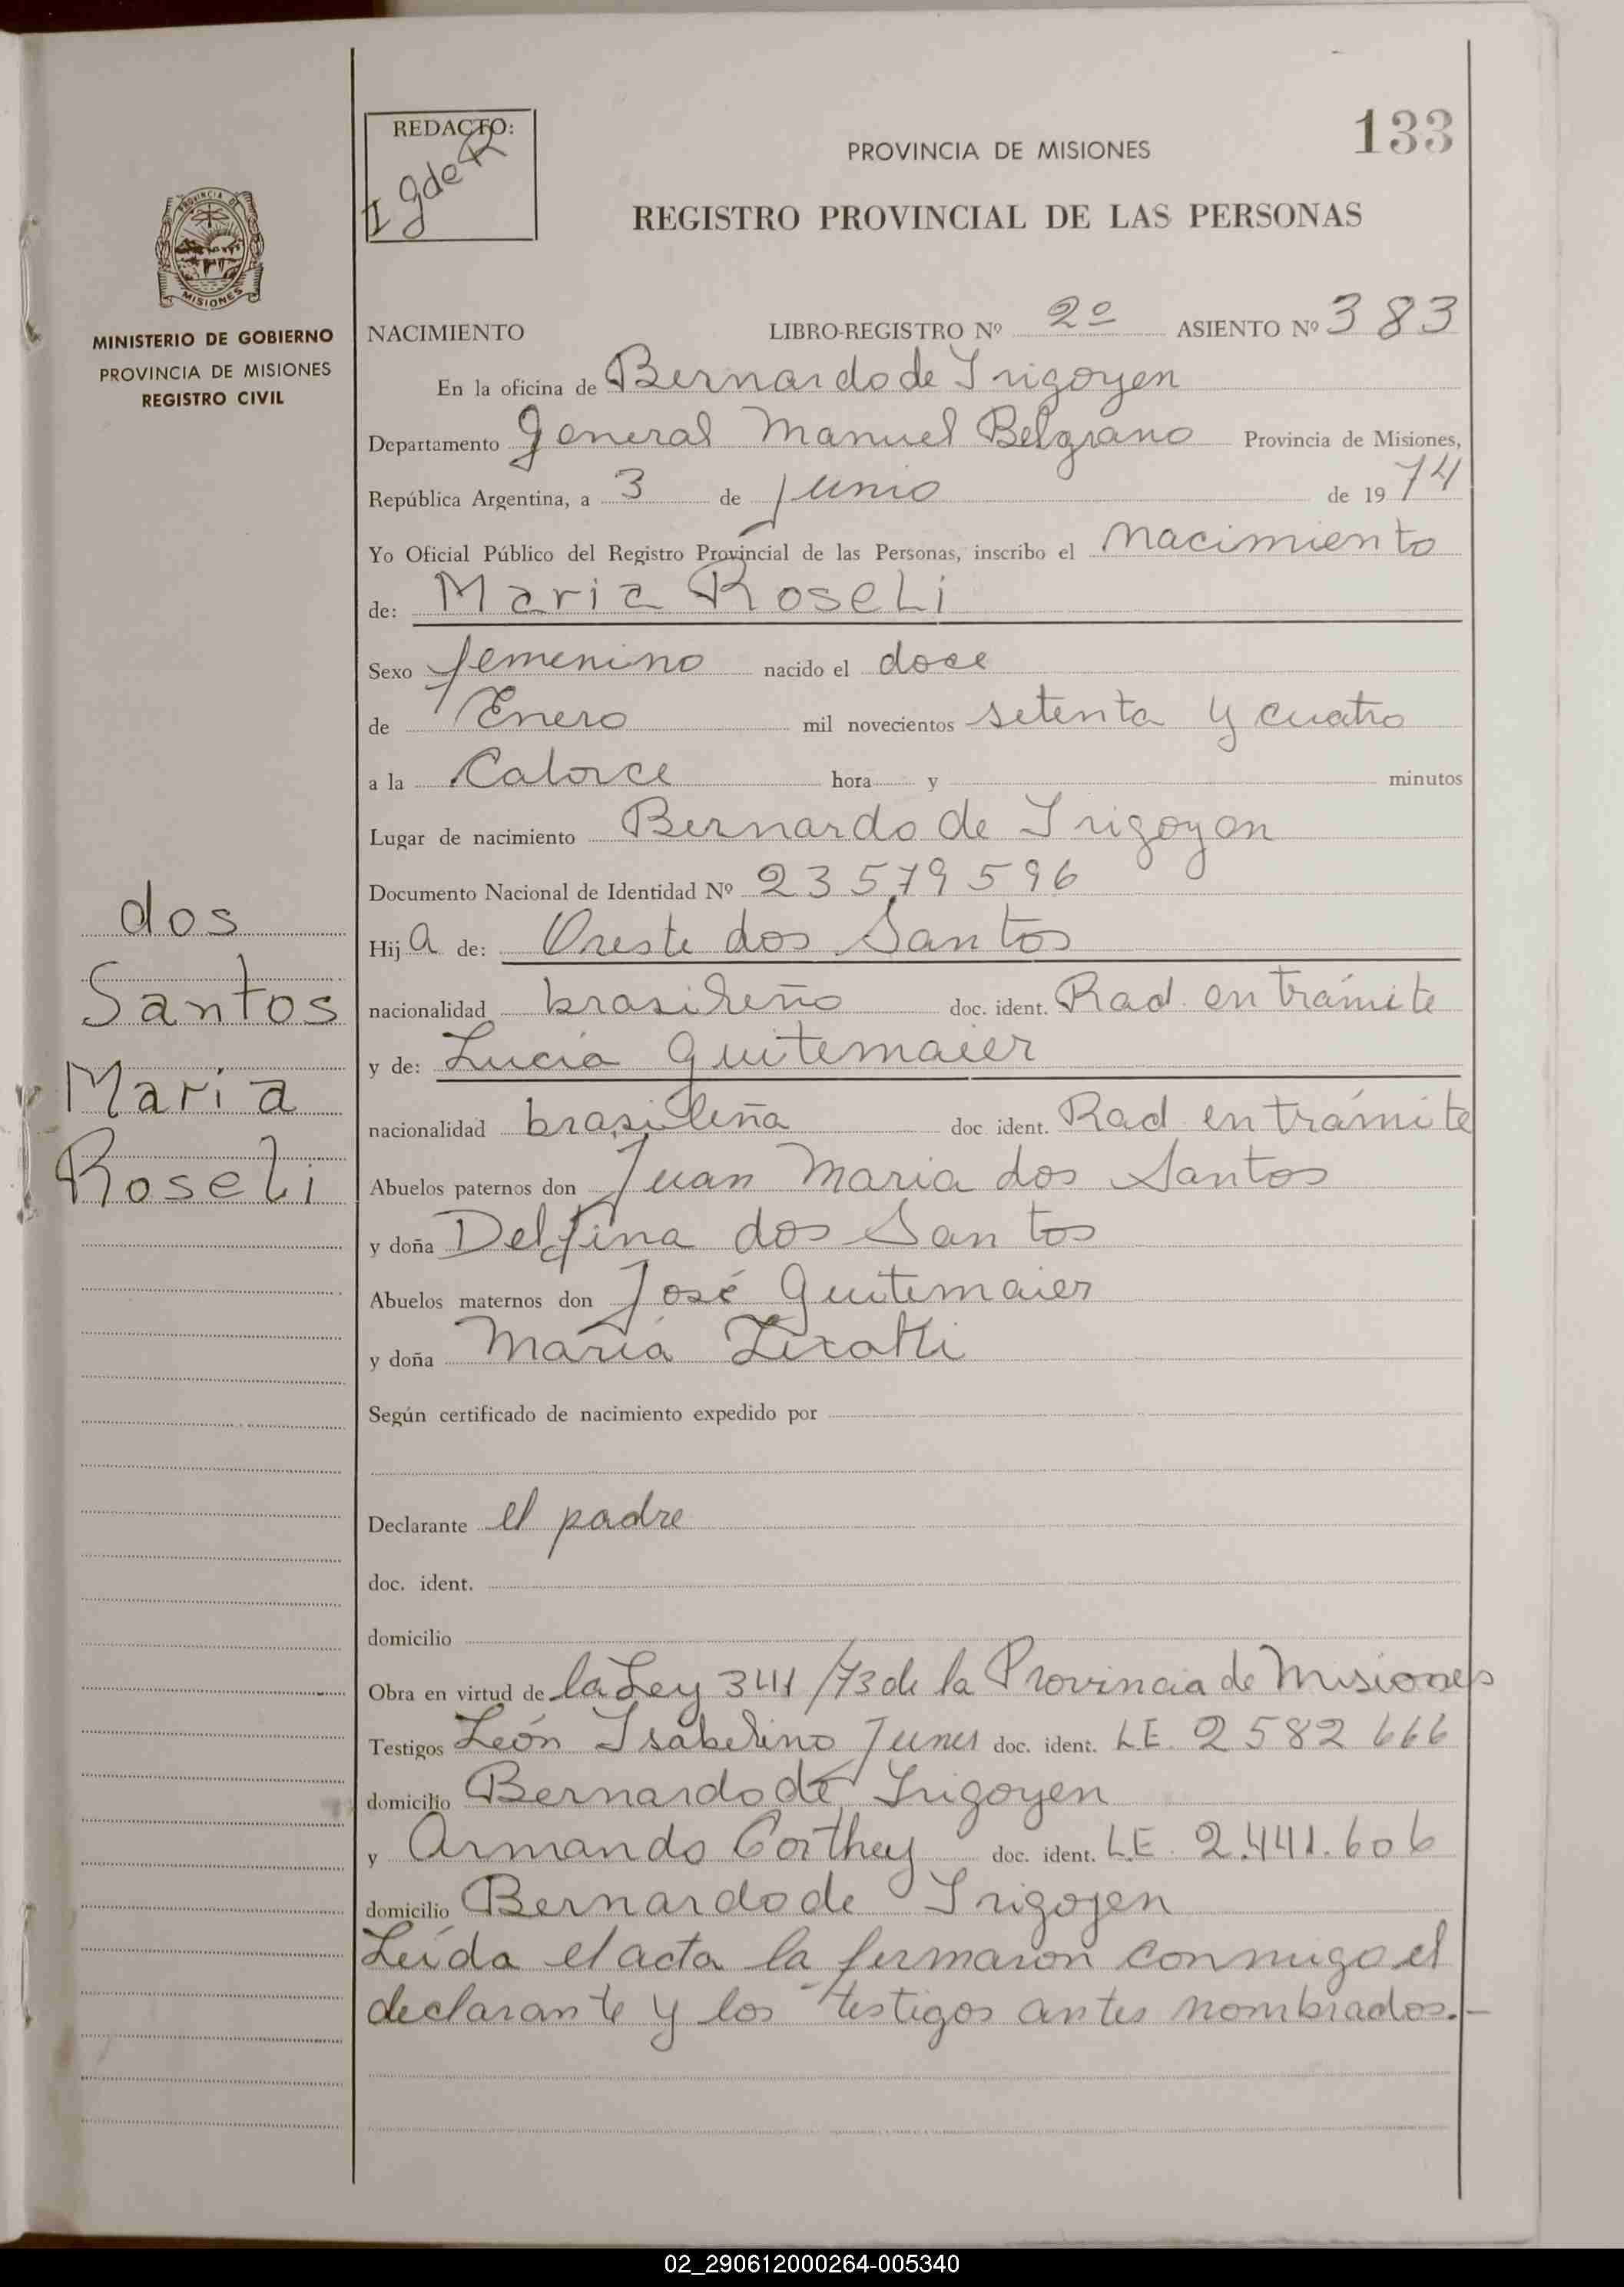 REDACTO:
I g de R
133
PROVINCIA DE MISIONES
REGISTRO PROVINCIAL DE LAS PERSONAS
PROVINCIA DE
MISIONES
MINISTERIO DE GOBIERNO
PROVINCIA DE MISIONES
REGISTRO CIVIL
NACIMIENTO LIBRO-REGISTRO Nº 2º ASIENTO Nº 383
En la oficina de Bernardo de Irigoyen
Departamento General Manuel Belgrano Provincia de Misiones,
República Argentina, a 3 de Junio de 1974
Yo Oficial Público del Registro Provincial de las Personas, inscribo el nacimiento
de: Maria Roseli
Sexo femenino nacido el doce
de Enero mil novecientos setenta y cuatro
a la Catorce hora y minutos
Lugar de nacimiento Bernardo de Irigoyen
Documento Nacional de Identidad Nº 23579596
Hija de: Oreste dos Santos
nacionalidad brasileño doc. ident. Rad. en trámite
y de: Lucia Guitemaier
nacionalidad brasileña doc ident. Rad. en trámite
Abuelos paternos don Juan Maria dos Santos
y doña Delfina dos Santos
Abuelos maternos don José Guitemaier
y doña María
Según certificado de nacimiento expedido por
Declarante el padre
doc. ident.
domicilio
Obra en virtud de la Ley 341/73 de la Provincia de Misiones
Testigos León Isabelino doc. ident. L.E. 2582666
domicilio Bernardo de Irigoyen
y Armando Corthey doc. ident. L.E. 2.441.606
domicilio Bernardo de Irigoyen
Leída el acta la firmaron conmigo el
declarante y los testigos antes nombrados.-
dos
Santos
Maria
Roseli
02_290612000264-005340